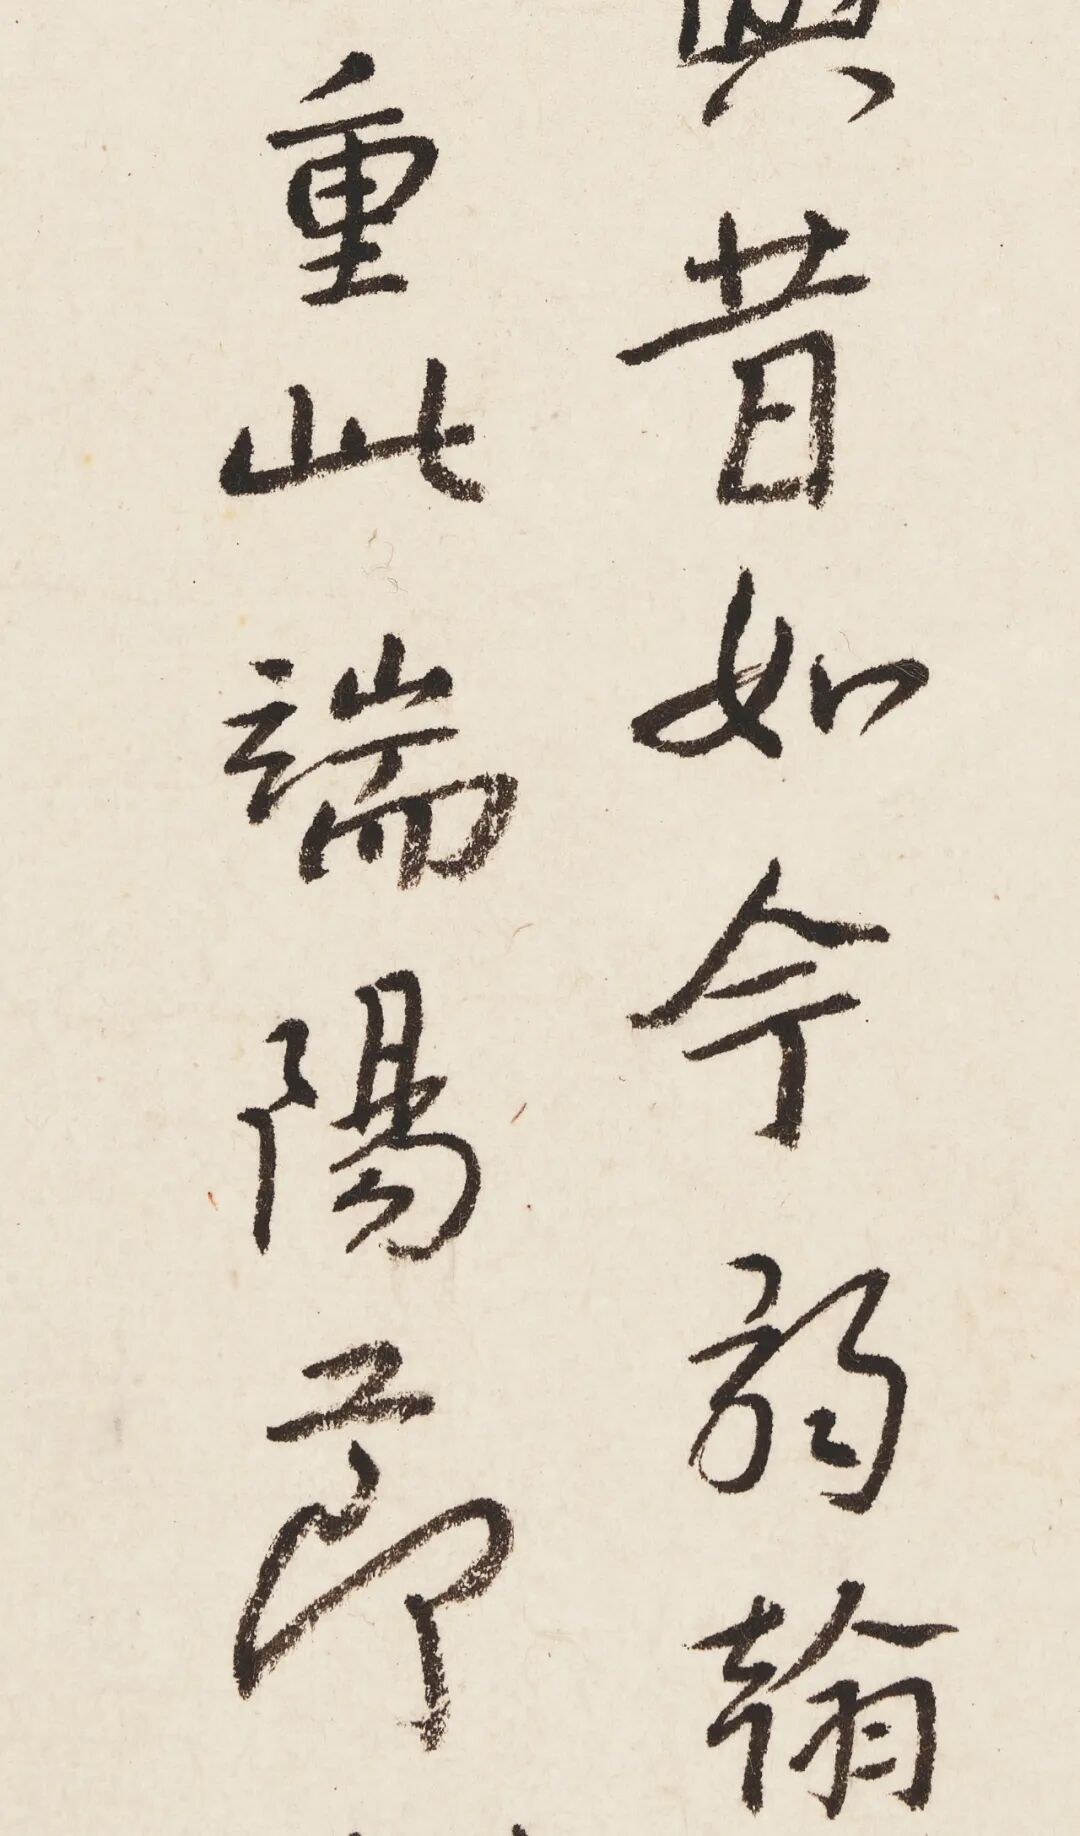 昔如今弱翰
重此端陽節